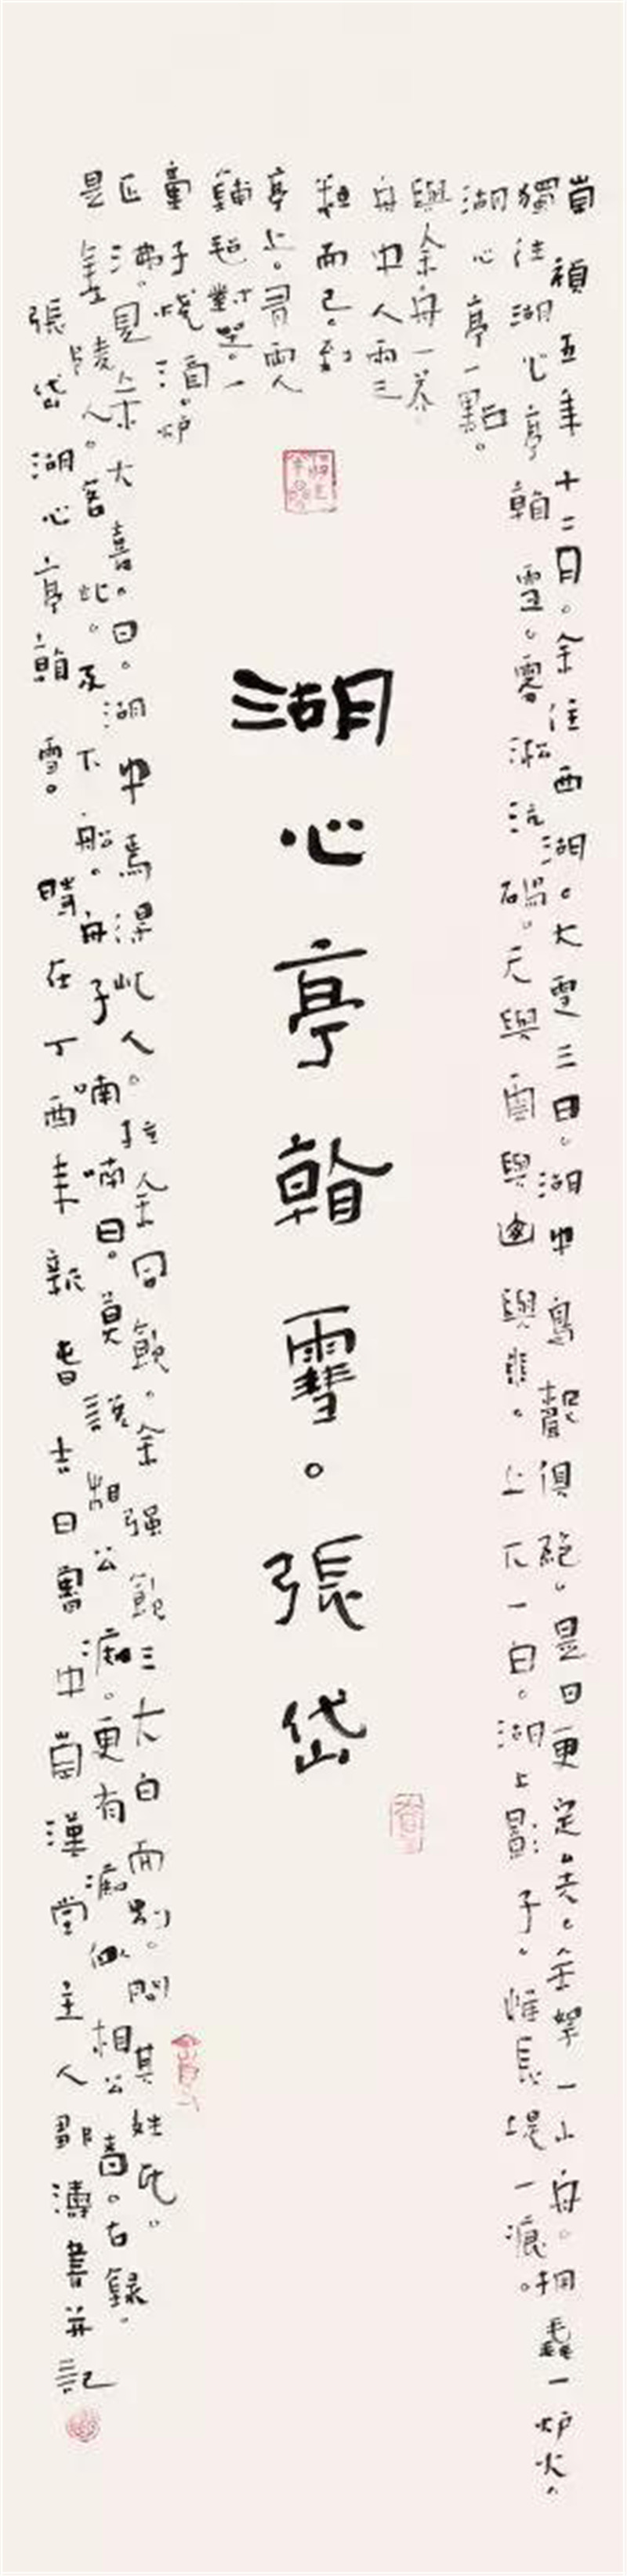 崇禎五年十二月。余住西湖。大雪三日。湖中鳥聲俱絕。是日更定矣。余拏一小舟。擁毳一炉火。
獨往湖心亭看雪。霧淞沆碭。天與雲與山與水。上下一白。湖上影子。惟長堤一痕。
湖心亭一點。
與余舟一芥。
舟中人兩三
粒而已。到
亭上。有兩人
鋪氈對坐。一
童子燒酒。炉
正沸。見余大喜。曰。湖中焉得此人。拉余同飲。余强飲三大白而別。問其姓氏。
是金陵人。客此。及下船。舟子喃喃曰。莫說相公痴。更有痴似相公者。右錄。
張岱湖心亭看雪。時在丁酉年新春吉日蜀中崇漢堂主人鄒濤書并記
湖心亭看雪。張岱